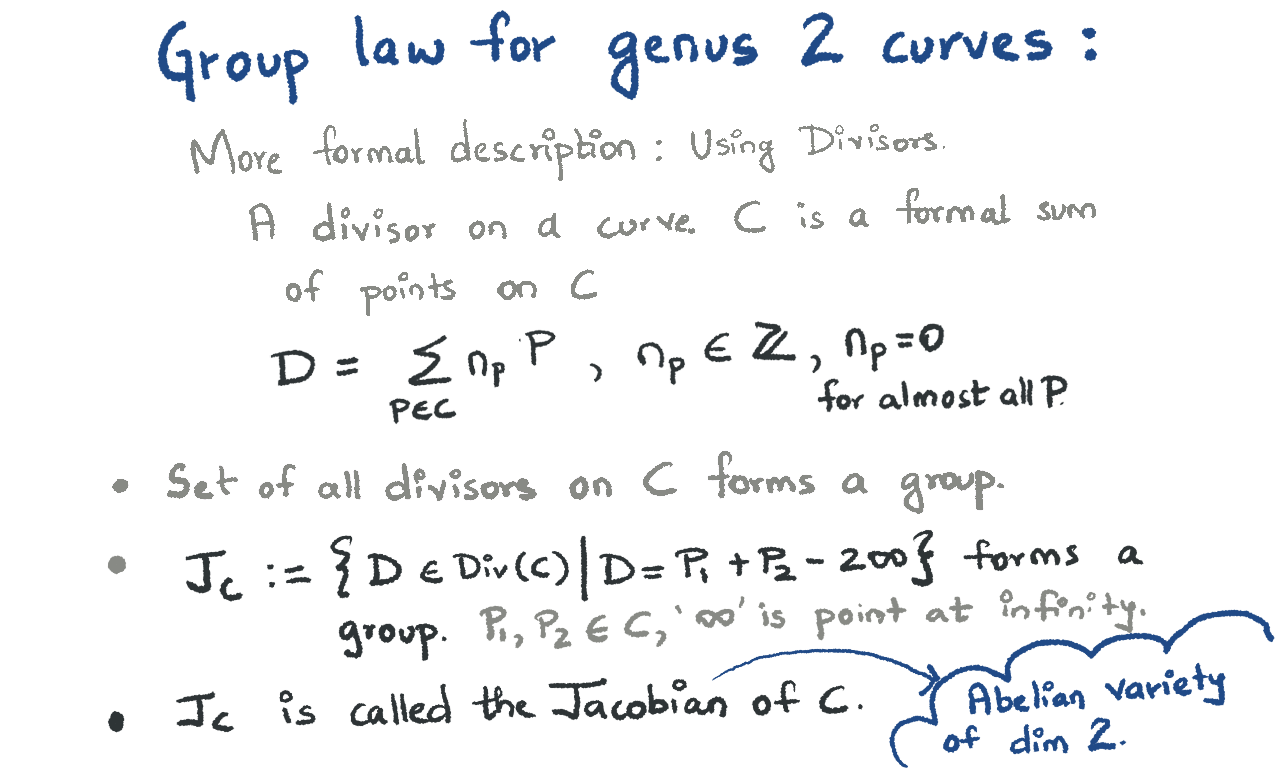 Group law for genus 2 curves :
More formal description : Using Divisors.
A divisor on a curve C is a formal sum
of points on C
D = ∑ n_P P , n_P ∈ ℤ, n_P = 0
P∈C
for almost all P
• Set of all divisors on C forms a group.
• J_C := { D ∈ Div(C) | D = P₁ + P₂ - 2∞ } forms a
group. P₁, P₂ ∈ C, '∞' is point at infinity.
• J_C is called the Jacobian of C.
Abelian variety
of dim 2.